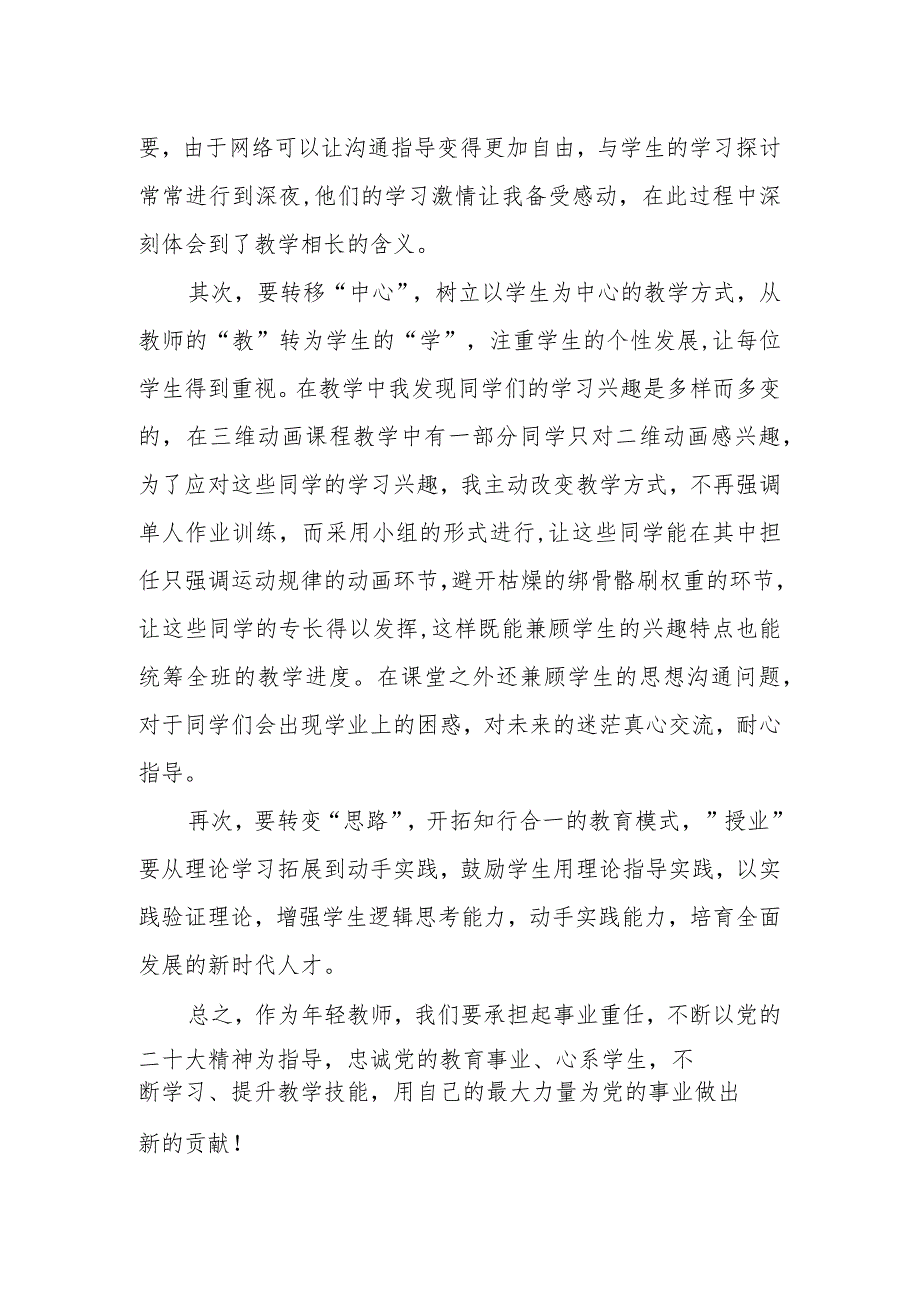 要，由于网络可以让沟通指导变得更加自由，与学生的学习探讨
常常进行到深夜,他们的学习激情让我备受感动，在此过程中深
刻体会到了教学相长的含义。
其次，要转移“中心”，树立以学生为中心的教学方式，从
教师的“教”转为学生的“学”，注重学生的个性发展,让每位
学生得到重视。在教学中我发现同学们的学习兴趣是多样而多变
的，在三维动画课程教学中有一部分同学只对二维动画感兴趣，
为了应对这些同学的学习兴趣，我主动改变教学方式，不再强调
单人作业训练，而采用小组的形式进行,让这些同学能在其中担
任只强调运动规律的动画环节,避开枯燥的绑骨骼刷权重的环节，
让这些同学的专长得以发挥,这样既能兼顾学生的兴趣特点也能
统筹全班的教学进度。在课堂之外还兼顾学生的思想沟通问题，
对于同学们会出现学业上的困惑，对未来的迷茫真心交流，耐心
指导。
再次，要转变“思路”，开拓知行合一的教育模式，”授业”
要从理论学习拓展到动手实践，鼓励学生用理论指导实践，以实
践验证理论，增强学生逻辑思考能力，动手实践能力，培育全面
发展的新时代人才。
总之，作为年轻教师，我们要承担起事业重任，不断以党的
二十大精神为指导，忠诚党的教育事业、心系学生，不
断学习、提升教学技能，用自己的最大力量为党的事业做出
新的贡献！